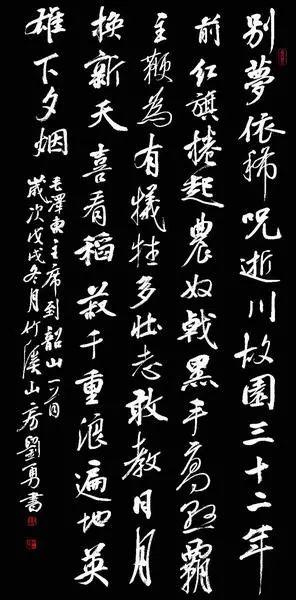 別夢依稀呪逝川故園三十二年
前紅旗捲起農奴戟黑手高懸霸
主鞭為有犧牲多壯志敢教日月
換新天喜看稻菽千重浪遍地英
雄下夕烟
毛澤東主席到韶山一首
歲次戊戌冬月竹溪山房劉勇書